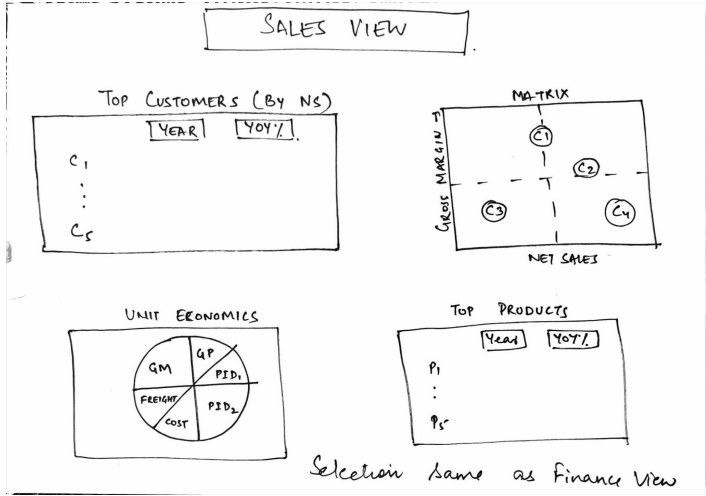 SALES VIEW
TOP CUSTOMERS (BY NS)
YEAR YOY%
C1
C5
MATRIX
GROSS MARGIN →
C1
C2
C3
C4
NET SALES
UNIT ECONOMICS
GM
GP
PID1
PID2
FREIGHT
COST
TOP PRODUCTS
Year YOY%
P1
P5
Selection same as Finance View